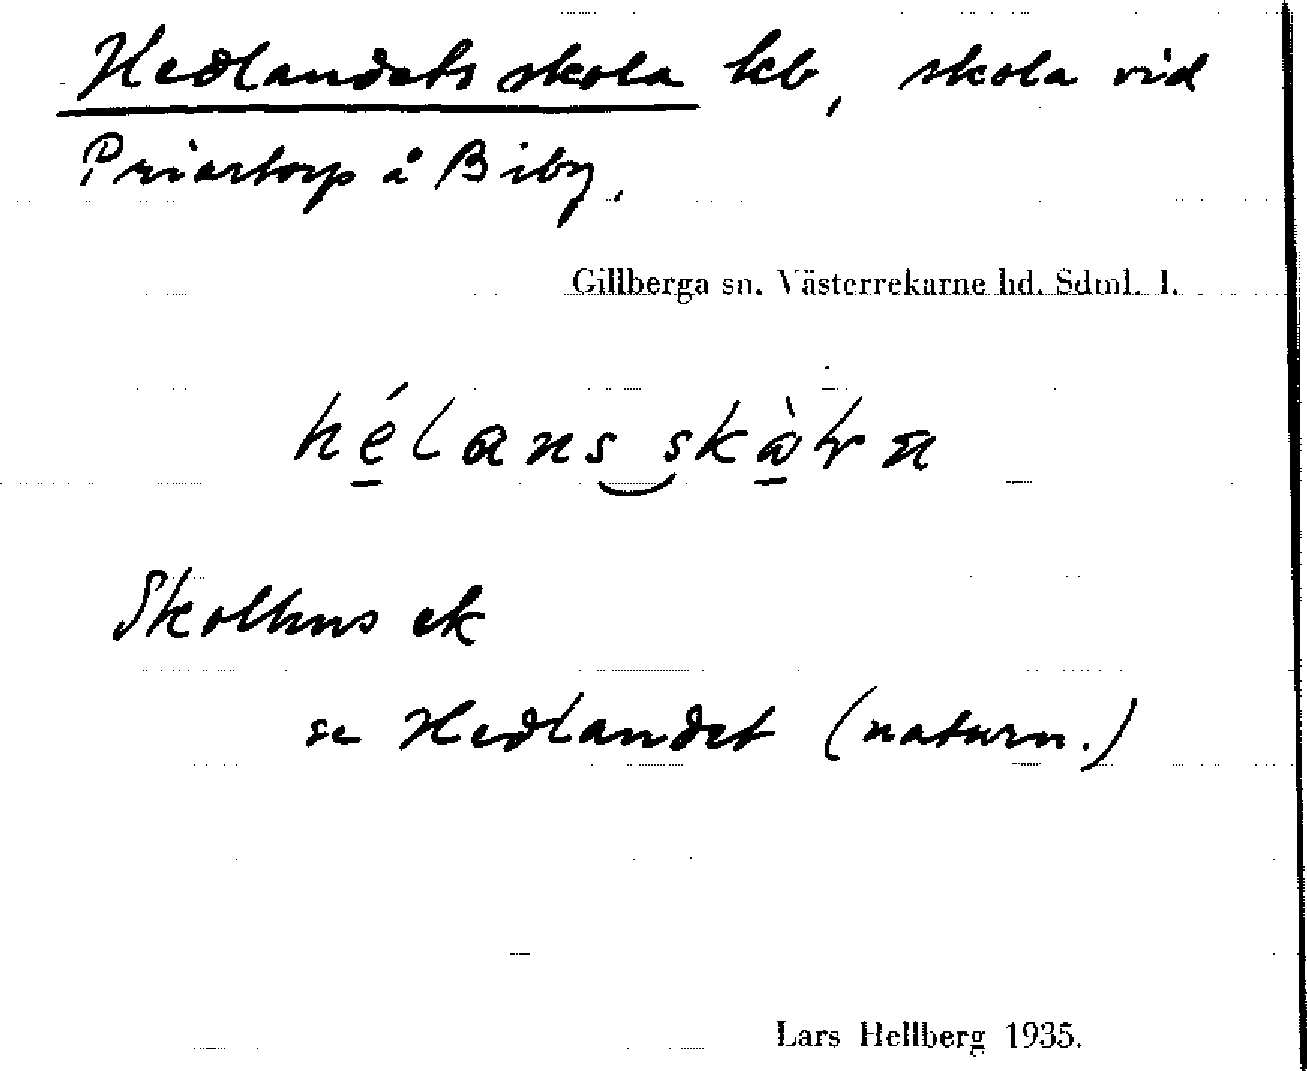 Hedlandets skola kb, skola vid
Priortorp å Biby.
Gillberga sn. Västerrekarne hd. Sdml. l.
hélans skå̀ɫa
Skolhus ek
se Hedlandet (naturn.)
Lars Hellberg 1935.